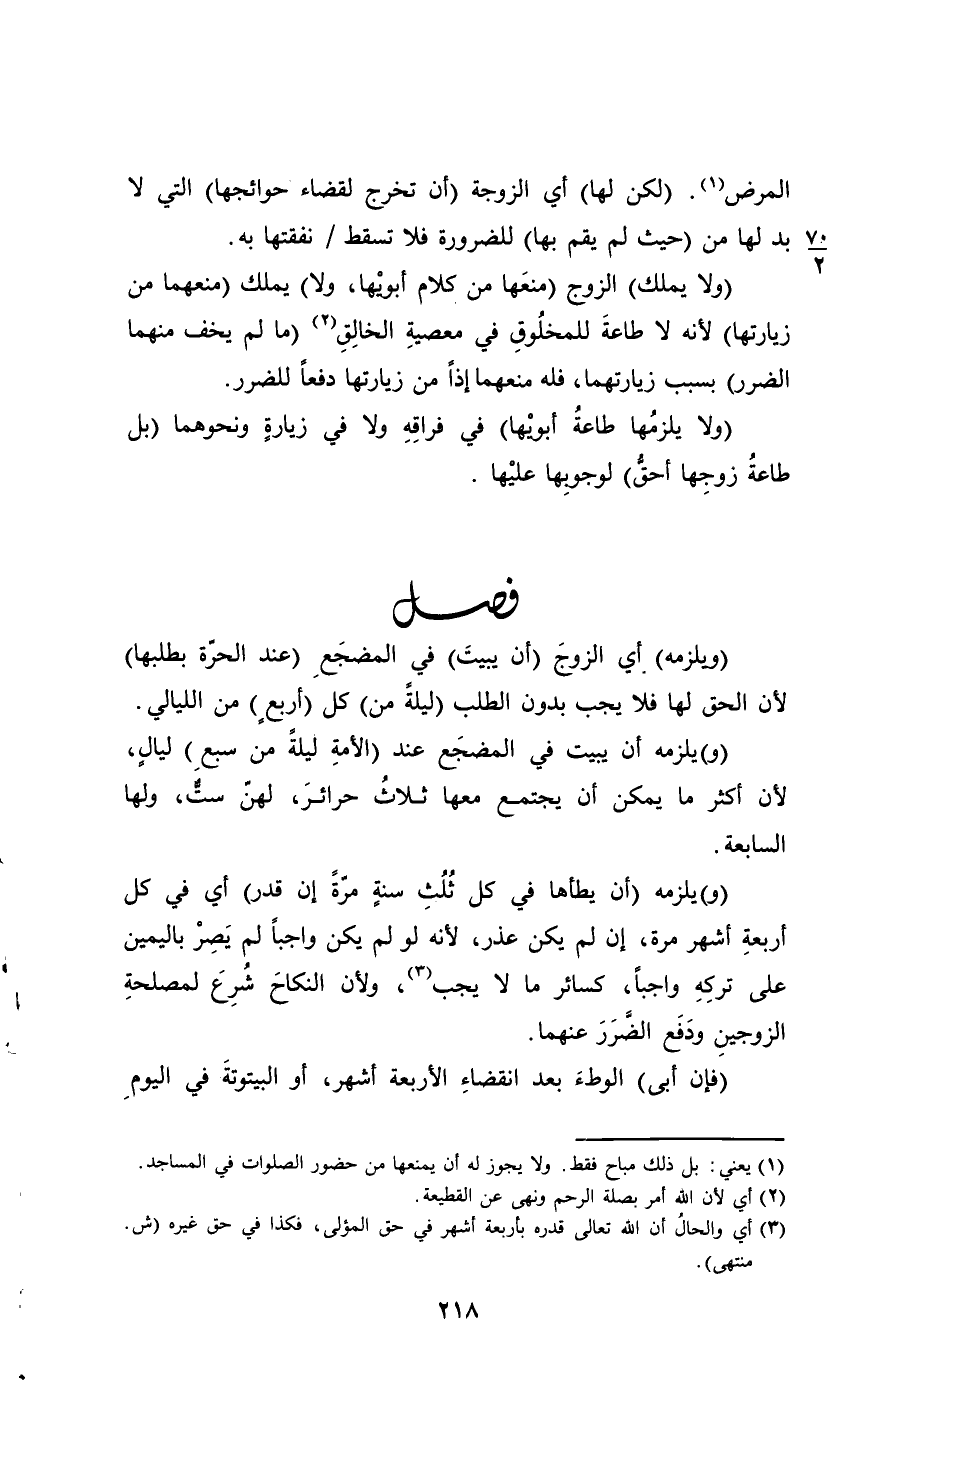 المرض(١). (لكن لها) أي الزوجة (أن تخرج لقضاء حوائجها) التي لا
٧٠/٢ بد لها من (حيث لم يقم بها) للضرورة فلا تسقط / نفقتها به.
(ولا يملك) الزوج (منعَها من كلام أبويْها، ولا) يملك (منعهما من
زيارتها) لأنه لا طاعةَ للمخلُوقِ في معصيةِ الخالِقِ(٢) (ما لم يخف منهما
الضرر) بسبب زيارتهما، فله منعهما إذاً من زيارتها دفعاً للضرر.
(ولا يلزمُها طاعةُ أبويْها) في فراقِهِ ولا في زيارةٍ ونحوهما (بل
طاعةُ زوجِها أحقُّ) لوجوبِها عليْها .
فصل
(ويلزمه) أي الزوجَ (أن يبيتَ) في المضجَعِ (عند الحرّة بطلبها)
لأن الحق لها فلا يجب بدون الطلب (ليلةً من) كل (أربعٍ) من الليالي.
(و)يلزمه أن يبيت في المضجَع عند (الأمةِ ليلةً من سبعٍ) ليالٍ،
لأن أكثر ما يمكن أن يجتمع معها ثلاثُ حرائرَ، لهنّ ستٌّ، ولها
السابعة.
(و)يلزمه (أن يطأها في كل ثُلُثِ سنةٍ مرّةً إن قدر) أي في كل
أربعةِ أشهر مرة، إن لم يكن عذر، لأنه لو لم يكن واجباً لم يَصِرْ باليمين
على تركِهِ واجباً، كسائر ما لا يجب(٣)، ولأن النكاحَ شُرِعَ لمصلحةِ
الزوجينِ ودَفَع الضَّرَرَ عنهما.
(فإن أبى) الوطءَ بعد انقضاءِ الأربعة أشهر، أو البيتوتةَ في اليومِ
(١) يعني: بل ذلك مباح فقط. ولا يجوز له أن يمنعها من حضور الصلوات في المساجد.
(٢) أي لأن الله أمر بصلة الرحم ونهى عن القطيعة.
(٣) أي والحالُ أن الله تعالى قدره بأربعة أشهر في حق المؤلى، فكذا في حق غيره (ش.
منتهى).
٢١٨